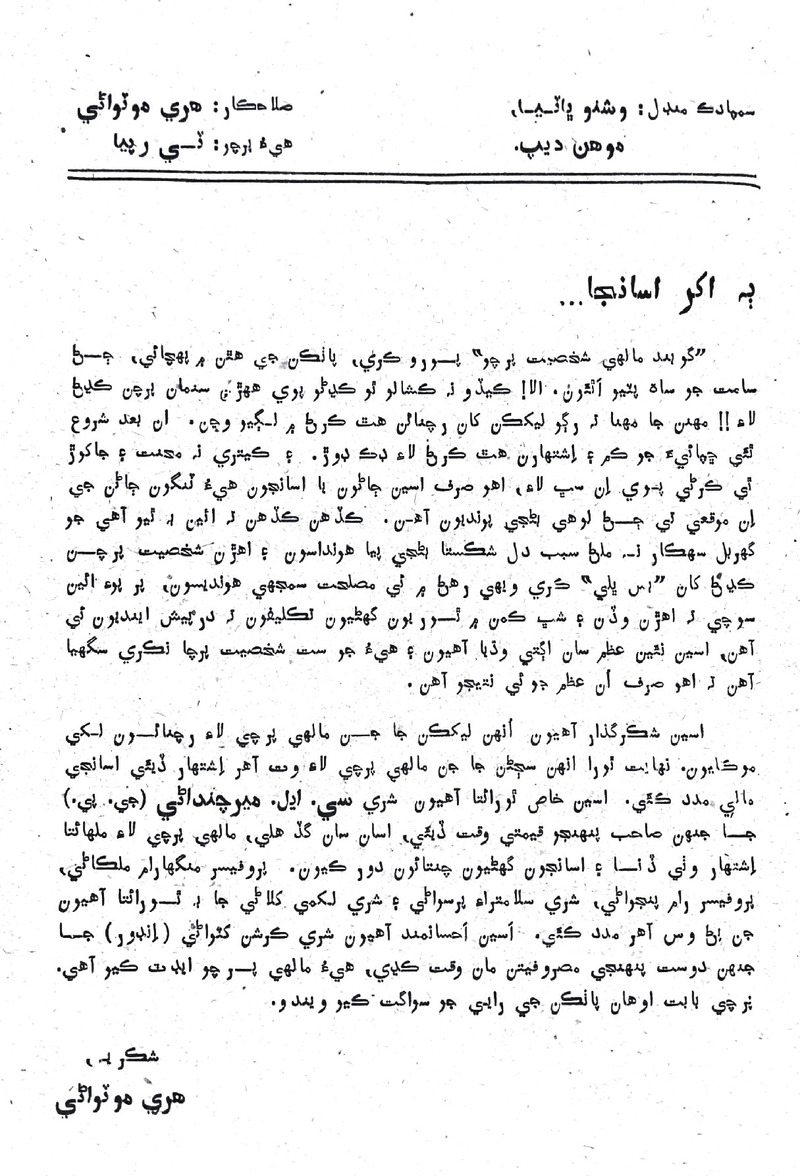 سمپادڪ منڊل: وشنو ڀاٽيا،
موهن ديپ.
صلاحڪار: هري موٽواڻي
هيءُ پرچو: ٽي رپيا
ٻه اکر اسانجا...
”گوبند مالهي شخصيت پرچو“ پورو ڪري، پاٺڪن جي هٿن ۾ پهچائي، ڄڻ
ساعت جو ساهه پٽيو آٿئون. الا! ڪيڏو نه ڪشالو ٿو ڪڍڻو پوي ههڙن سنمان پرچن ڪڍڻ
لاءِ !! مهنن جا مهنا ته رڳو ليکڪن کان رچنائن هٿ ڪرڻ ۾ لڳيو وڃن. ان بعد شروع
ٿئي ڇپائيءَ جو ڪم ۽ اِشتهارن هٿ ڪرڻ لاءِ ڊڪ ڊوڙ. ۽ ڪيتري نه محنت ۽ جاکوڙ
ٿي ڪرڻي پوي اِن سڀ لاءِ، اهو صرف اسين ڄاڻون يا اسانجون هيءُ ٽنگون ڄاڻن جي
اِن موقعي تي ڄڻ لوهي بڻجي پونديون آهن. ڪڏهن ڪڏهن ته ائين به ٿيو آهي جو
گهربل سهڪار نه ملڻ سبب دل شڪستا بڻجي پيا هونداسون ۽ اهڙن شخصيت پرچن
ڪڍڻ کان ”بس ڀلي“ ڪري ويهي رهڻ ۾ ئي مصلحت سمجهي هونديسون، پر پوءِ ائين
سوچي ته اهڙن وڏن ۽ شڀ ڪمن ۾ ٿوريون گهڻيون تڪليفون ته درپيش اينديون ئي
آهن، اسين نئين عظم سان اڳتي وڌيا آهيون ۽ هيءُ جو ست شخصيت پرچا نڪري سگهيا
آهن ته اهو صرف اُن عظم جو ئي نتيجو آهن.
اسين شڪرگذار آهيون اُنهن ليکڪن جا جن مالهي پرچي لاءِ رچنائون لکي
موڪليون. نهايت ٿورا انهن سڄڻن جا جن مالهي پرچي لاءِ وت آهر اِشتهار ڏيئي اسانجي
مالي مدد ڪئي. اسين خاص ٿورائتا آهيون شري سي. ايل. ميرچنداڻي (جي. پي.)
جا جنهن صاحب پنهنجو قيمتي وقت ڏيئي، اسان سان گڏ هلي، مالهي پرچي لاءِ ملهائتا
اِشتهار وٺي ڏنا ۽ اسانجون گهڻيون چنتائون دور ڪيون. پروفيسر منگهارام ملڪاڻي،
پروفيسر رام پنجواڻي، شري سلامتراءِ پرسواڻي ۽ شري لکمي کلاڻي جا به ٿورائتا آهيون
جن پڻ وس آهر مدد ڪئي. اَسين اَحسانمند آهيون شري ڪرشن کٽواڻي (اِنڊور) جا
جنهن دوست پنهنجي مصروفيتن مان وقت ڪڍي، هيءُ مالهي پرچو ايڊٽ ڪيو آهي.
پرچي بابت اوهان پاٺڪن جي رايي جو سواگت ڪيو ويندو.
شڪريه،
هري موٽواڻي